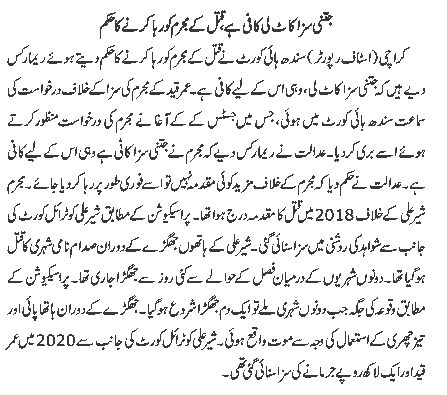 جتنی سزا کاٹ لی کافی ہے، قتل کے مجرم کو رہا کرنے کا حکم
کراچی (اسٹاف رپورٹر) سندھ ہائی کورٹ نے قتل کے مجرم کو رہا کرنے کا حکم دیتے ہوئے ریمارکس
دیے ہیں کہ جتنی سزا کاٹ لی، وہی اس کے لیے کافی ہے۔ عمر قید کے مجرم کی سزا کے خلاف درخواست کی
سماعت سندھ ہائی کورٹ میں ہوئی، جس میں جسٹس کے کے آغا نے مجرم کی درخواست منظور کرتے
ہوئے اسے بری کر دیا۔ عدالت نے ریمارکس دیے کہ مجرم نے جتنی سزا کاٹی ہے وہی اس کے لیے کافی
ہے۔ عدالت نے حکم دیا کہ مجرم کے خلاف مزید کوئی مقدمہ نہیں تو اسے فوری طور پر رہا کر دیا جائے۔ مجرم
شیر علی کے خلاف 2018 میں قتل کا مقدمہ درج ہوا تھا۔ پراسیکیوشن کے مطابق شیر علی کو ٹرائل کورٹ کی
جانب سے شواہد کی روشنی میں سزا سنائی گئی۔ شیر علی کے ہاتھوں جھگڑے کے دوران صدام نامی شہری کا قتل
ہو گیا تھا۔ دونوں شہریوں کے درمیان فصل کے حوالے سے کئی روز سے جھگڑا جاری تھا۔ پراسیکیوشن کے
مطابق وقوعہ کی جگہ جب دونوں شہری ملے تو ایک دم جھگڑا شروع ہو گیا۔ جھگڑے کے دوران ہاتھا پائی اور
تیز چھری کے استعمال کی وجہ سے موت واقع ہوئی۔ شیر علی کو ٹرائل کورٹ کی جانب سے 2020 میں عمر
قید اور ایک لاکھ روپے جرمانے کی سزا سنائی گئی تھی۔